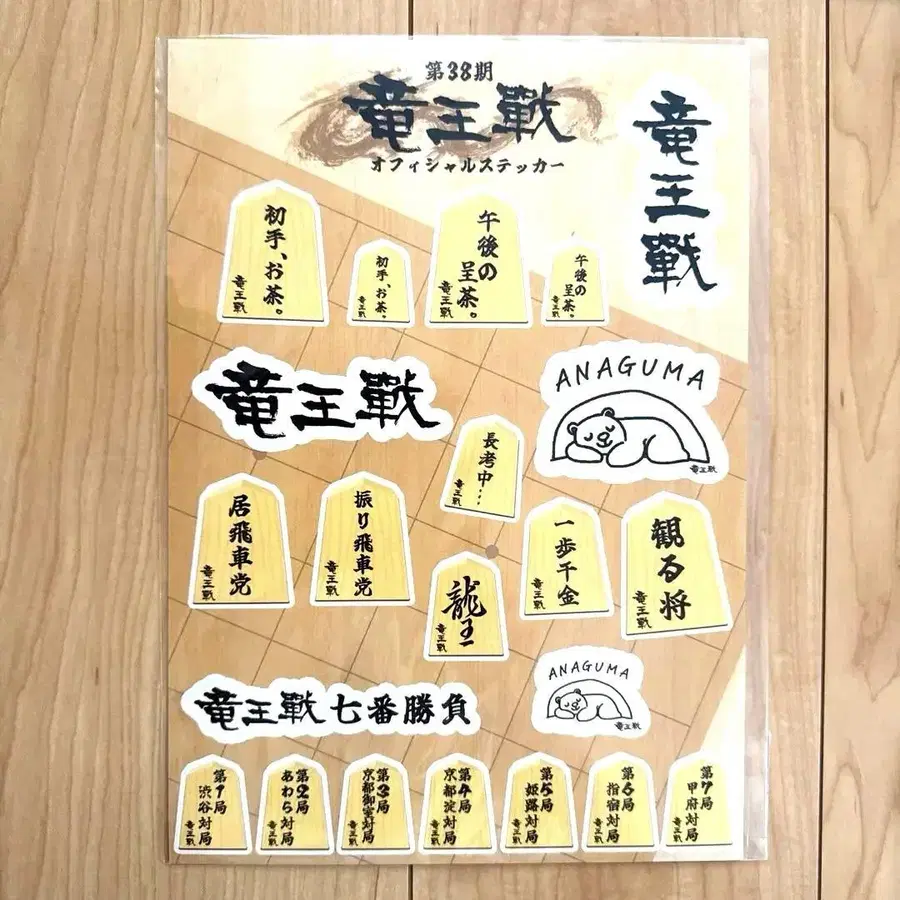 第38期
竜王戰
オフィシャルステッカー
竜王戰
初手、お茶。
竜王戰
初手、お茶。
竜王戰
午後の
呈茶。
竜王戰
午後の
呈茶。
竜王戰
竜王戰
ANAGUMA
竜王戰
長考中…
竜王戰
居飛車党
竜王戰
振り飛車党
竜王戰
龍王
竜王戰
一歩千金
竜王戰
観る将
竜王戰
竜王戰七番勝負
ANAGUMA
竜王戰
第1局
渋谷対局
竜王戰
第2局
あわら対局
竜王戰
第3局
京都御室対局
竜王戰
第4局
京都淀対局
竜王戰
第5局
姫路対局
竜王戰
第6局
指宿対局
竜王戰
第7局
甲府対局
竜王戰